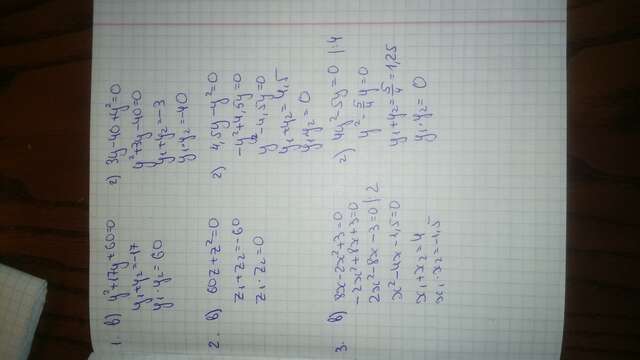 1. в) y²+17y+60=0
y₁+y₂=-17
y₁·y₂=60
г) 3y-40+y²=0
y²+3y-40=0
y₁+y₂=-3
y₁·y₂=-40
2. в) 60z+z²=0
z₁+z₂=-60
z₁·z₂=0
г) 4,5y-y²=0
-y²+4,5y=0
y²-4,5y=0
y₁+y₂=4,5
y₁·y₂=0
3. в) 8x-2x²+3=0
-2x²+8x+3=0
2x²-8x-3=0|2
x²-4x-1,5=0
x₁+x₂=4
x₁·x₂=-1,5
г) 4y²-5y=0 |:4
y²-5/4y=0
y₁+y₂=5/4=1,25
y₁·y₂=0